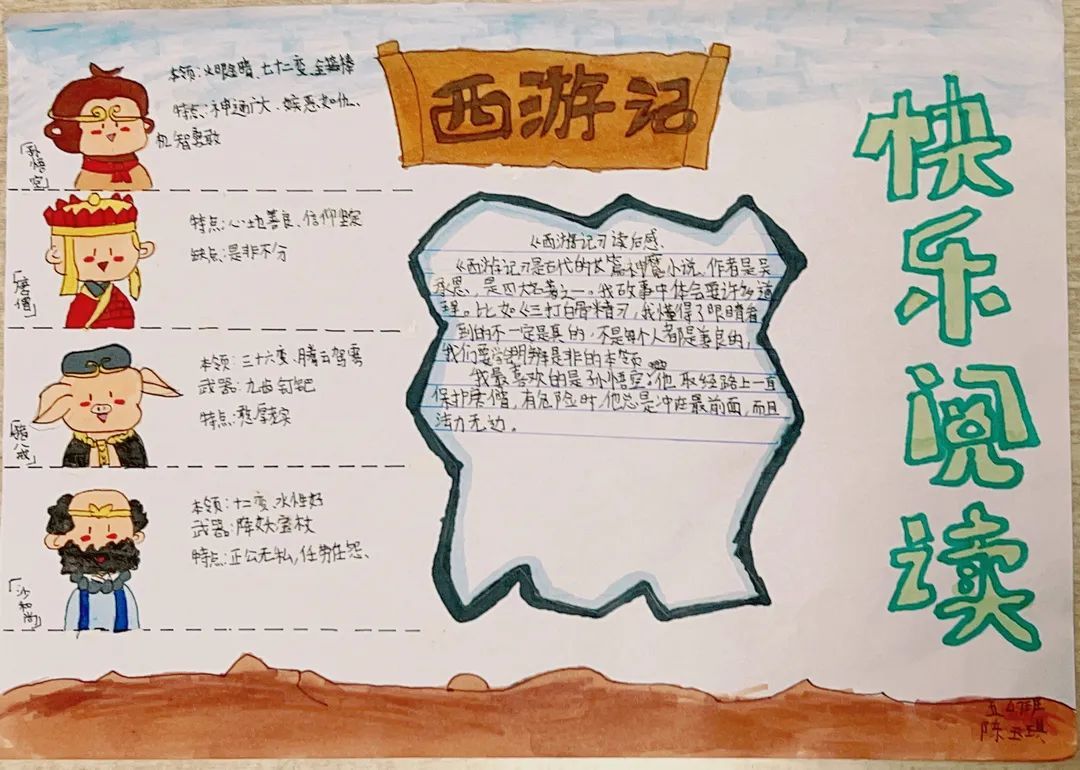 西游记
快乐阅读
本领:火眼金睛、七十二变、金箍棒
特点:神通广大、嫉恶如仇、
机智勇敢
「孙悟空」
特点:心地善良、信仰坚定
缺点:是非不分
「唐僧」
本领:三十六变、腾云驾雾
武器:九齿钉耙
特点:憨厚老实
「猪八戒」
本领:十二变、水性好
武器:降妖宝杖
特点:正公无私,任劳任怨、
「沙和尚」
《西游记》读后感、
《西游记》是古代的长篇神魔小说、作者是吴
承恩,是四大名著之一。我故事中体会要许多道
理。比如《三打白骨精》,我懂得了眼睛看
到的不一定是真的,不是每个人都是善良的,
我们要学明辨是非的本领
我最喜欢的是孙悟空,他取经路上一直
保护唐僧,有危险时,他总是冲在最前面,而且
法力无边。